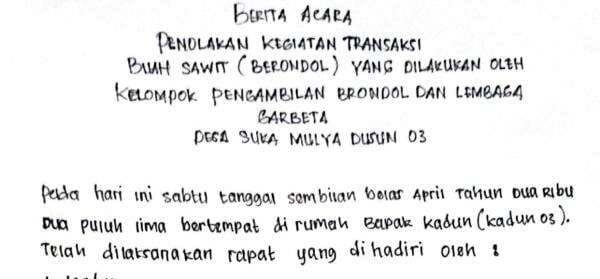 BERITA ACARA
PENOLAKAN KEGIATAN TRANSAKSI
BUAH SAWIT (BERONDOL) YANG DILAKUKAN OLEH
KELOMPOK PENGAMBILAN BRONDOL DAN LEMBAGA
BARBETA
DESA SUKA MULYA DUSUN 03
Pada hari ini sabtu tanggal sembilan belas April Tahun Dua Ribu
Dua puluh lima bertempat di rumah Bapak kadun (kadun 03).
Telah dilaksanakan rapat yang di hadiri oleh :